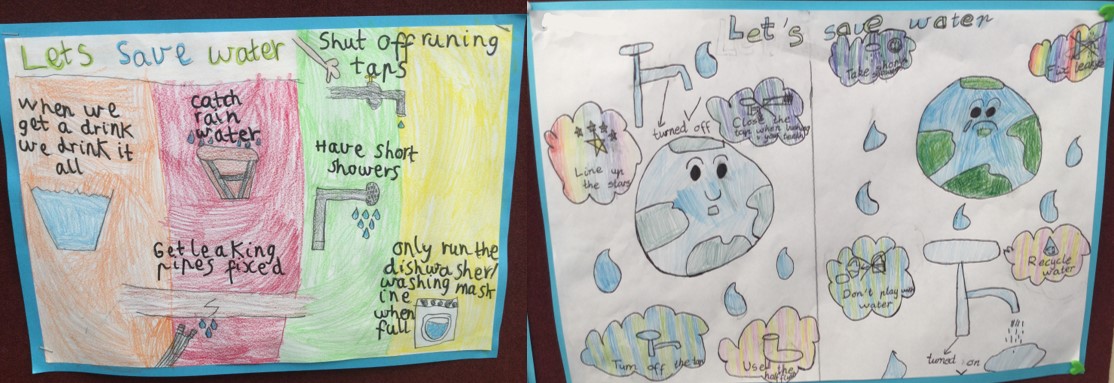 Lets Save water
when we
get a drink
we drink it
all
catch
rain
water
Shut off runing
taps
Have short
showers
Get leaking
pipes fixed
only run the
dishwasher/
washing mash
ine
when
full
Let's save water
turned off
Close the
taps when
your teeth
Line up
the stars
Turn off the tap
Use the
half flush
Take short
showers
Fix leaks
Don't play with
water
Recycle
water
turned on